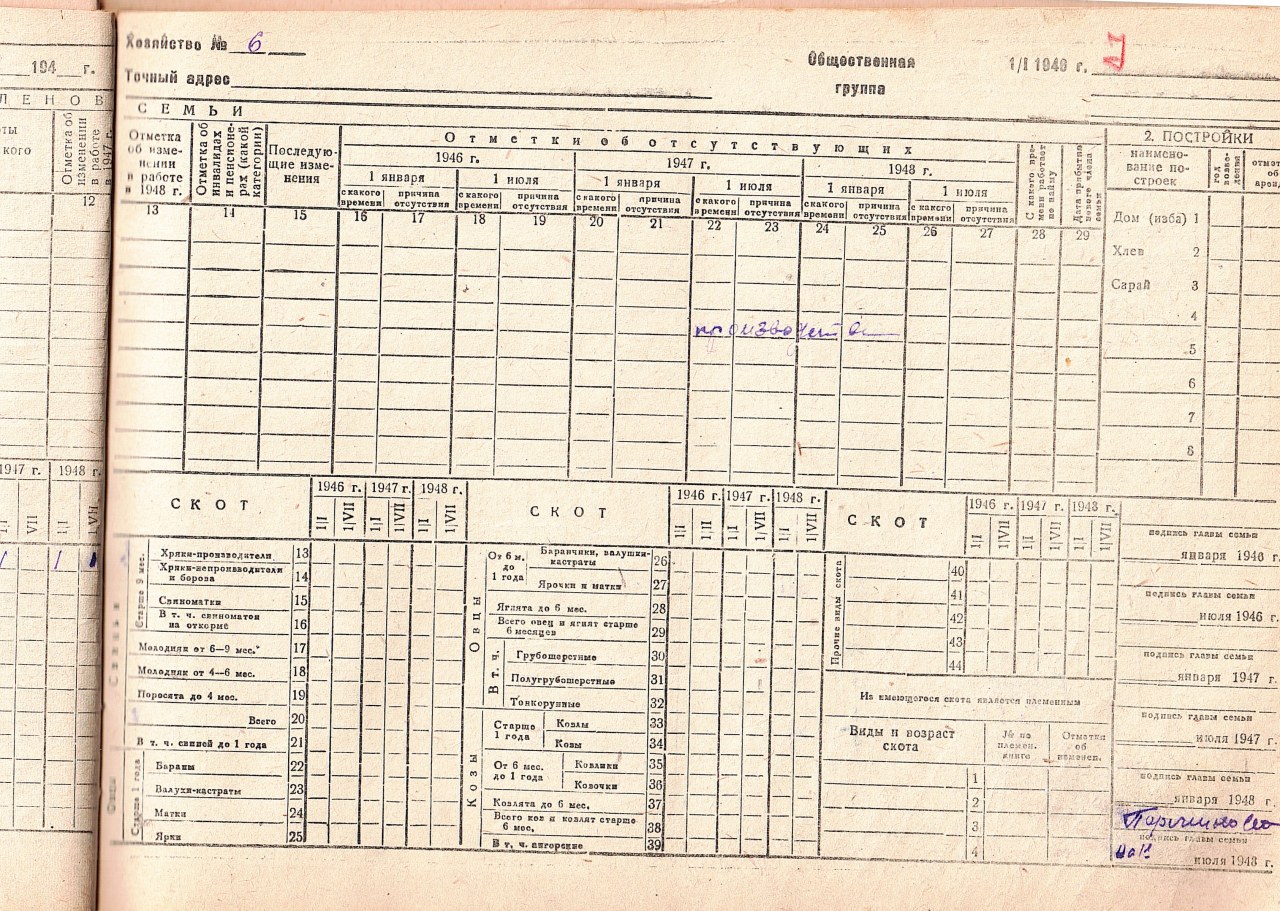 194 г.
ЛЕНОВ
Отметка об изменении в работе в 1947 г.
12
1947 г. 1948 г.
1/I VII 1/I 1/VII
Хозяйство № 6
Точный адрес
Общественная группа
1/I 1940 г.
СЕМЬИ
Отметка об изменении в работе в 1948 г.
Отметка об инвалидах и пенсионерах (какой категории)
Последующие изменения
Отметки об отсутствующих
1946 г. 1947 г. 1948 г.
1 января 1 июля 1 января 1 июля 1 января 1 июля
с какого времени причина отсутствия с какого времени причина отсутствия с какого времени причина отсутствия с какого времени причина отсутствия с какого времени причина отсутствия с какого времени причина отсутствия
С какого времени работает по найму
Дата прибытия нового члена семьи
13 14 15 16 17 18 19 20 21 22 23 24 25 26 27 28 29
2. ПОСТРОЙКИ
наименование построек
год возведения
Дом (изба) 1
Хлев 2
Сарай 3
4
5
6
7
8
СКОТ
1946 г. 1947 г. 1948 г.
1/I 1/VII 1/I 1/VII 1/I 1/VII
Старше 9 мес.
Хряки-производители 13
Хряки-непроизводители и борова 14
Свиноматки 15
В т. ч. свиноматок на откорме 16
Молодняк от 6—9 мес. 17
Молодняк от 4—6 мес. 18
Поросята до 4 мес. 19
Всего 20
В т. ч. свиней до 1 года 21
Старше 1 года
Бараны 22
Валухи-кастраты 23
Матки 24
Ярки 25
СКОТ
1946 г. 1947 г. 1948 г.
1/I 1/II 1/I 1/VII 1/I 1/VII
Овцы
От 6 м. до 1 года
Баранчики, валушки-кастраты 26
Ярочки и матки 27
Ягнята до 6 мес. 28
Всего овец и ягнят старше 6 месяцев 29
В т. ч.
Грубошерстные 30
Полугрубошерстные 31
Тонкорунные 32
Козы
Старше 1 года
Козлы 33
Козы 34
От 6 мес. до 1 года
Козлики 35
Козочки 36
Козлята до 6 мес. 37
Всего коз и козлят старше 6 мес. 38
В т. ч. ангорские 39
СКОТ
1946 г. 1947 г. 1948 г.
1/I 1/VII 1/I 1/VII 1/I 1/VII
Прочие виды скота
40
41
42
43
44
Из имеющегося скота является племенным
Виды и возраст скота
№ по племен. книге
Отметка об изменен.
1
2
3
4
подпись главы семьи
января 1946 г.
подпись главы семьи
июля 1946 г.
подпись главы семьи
января 1947 г.
подпись главы семьи
июля 1947 г.
подпись главы семьи
января 1948 г.
подпись главы семьи
июля 1948 г.